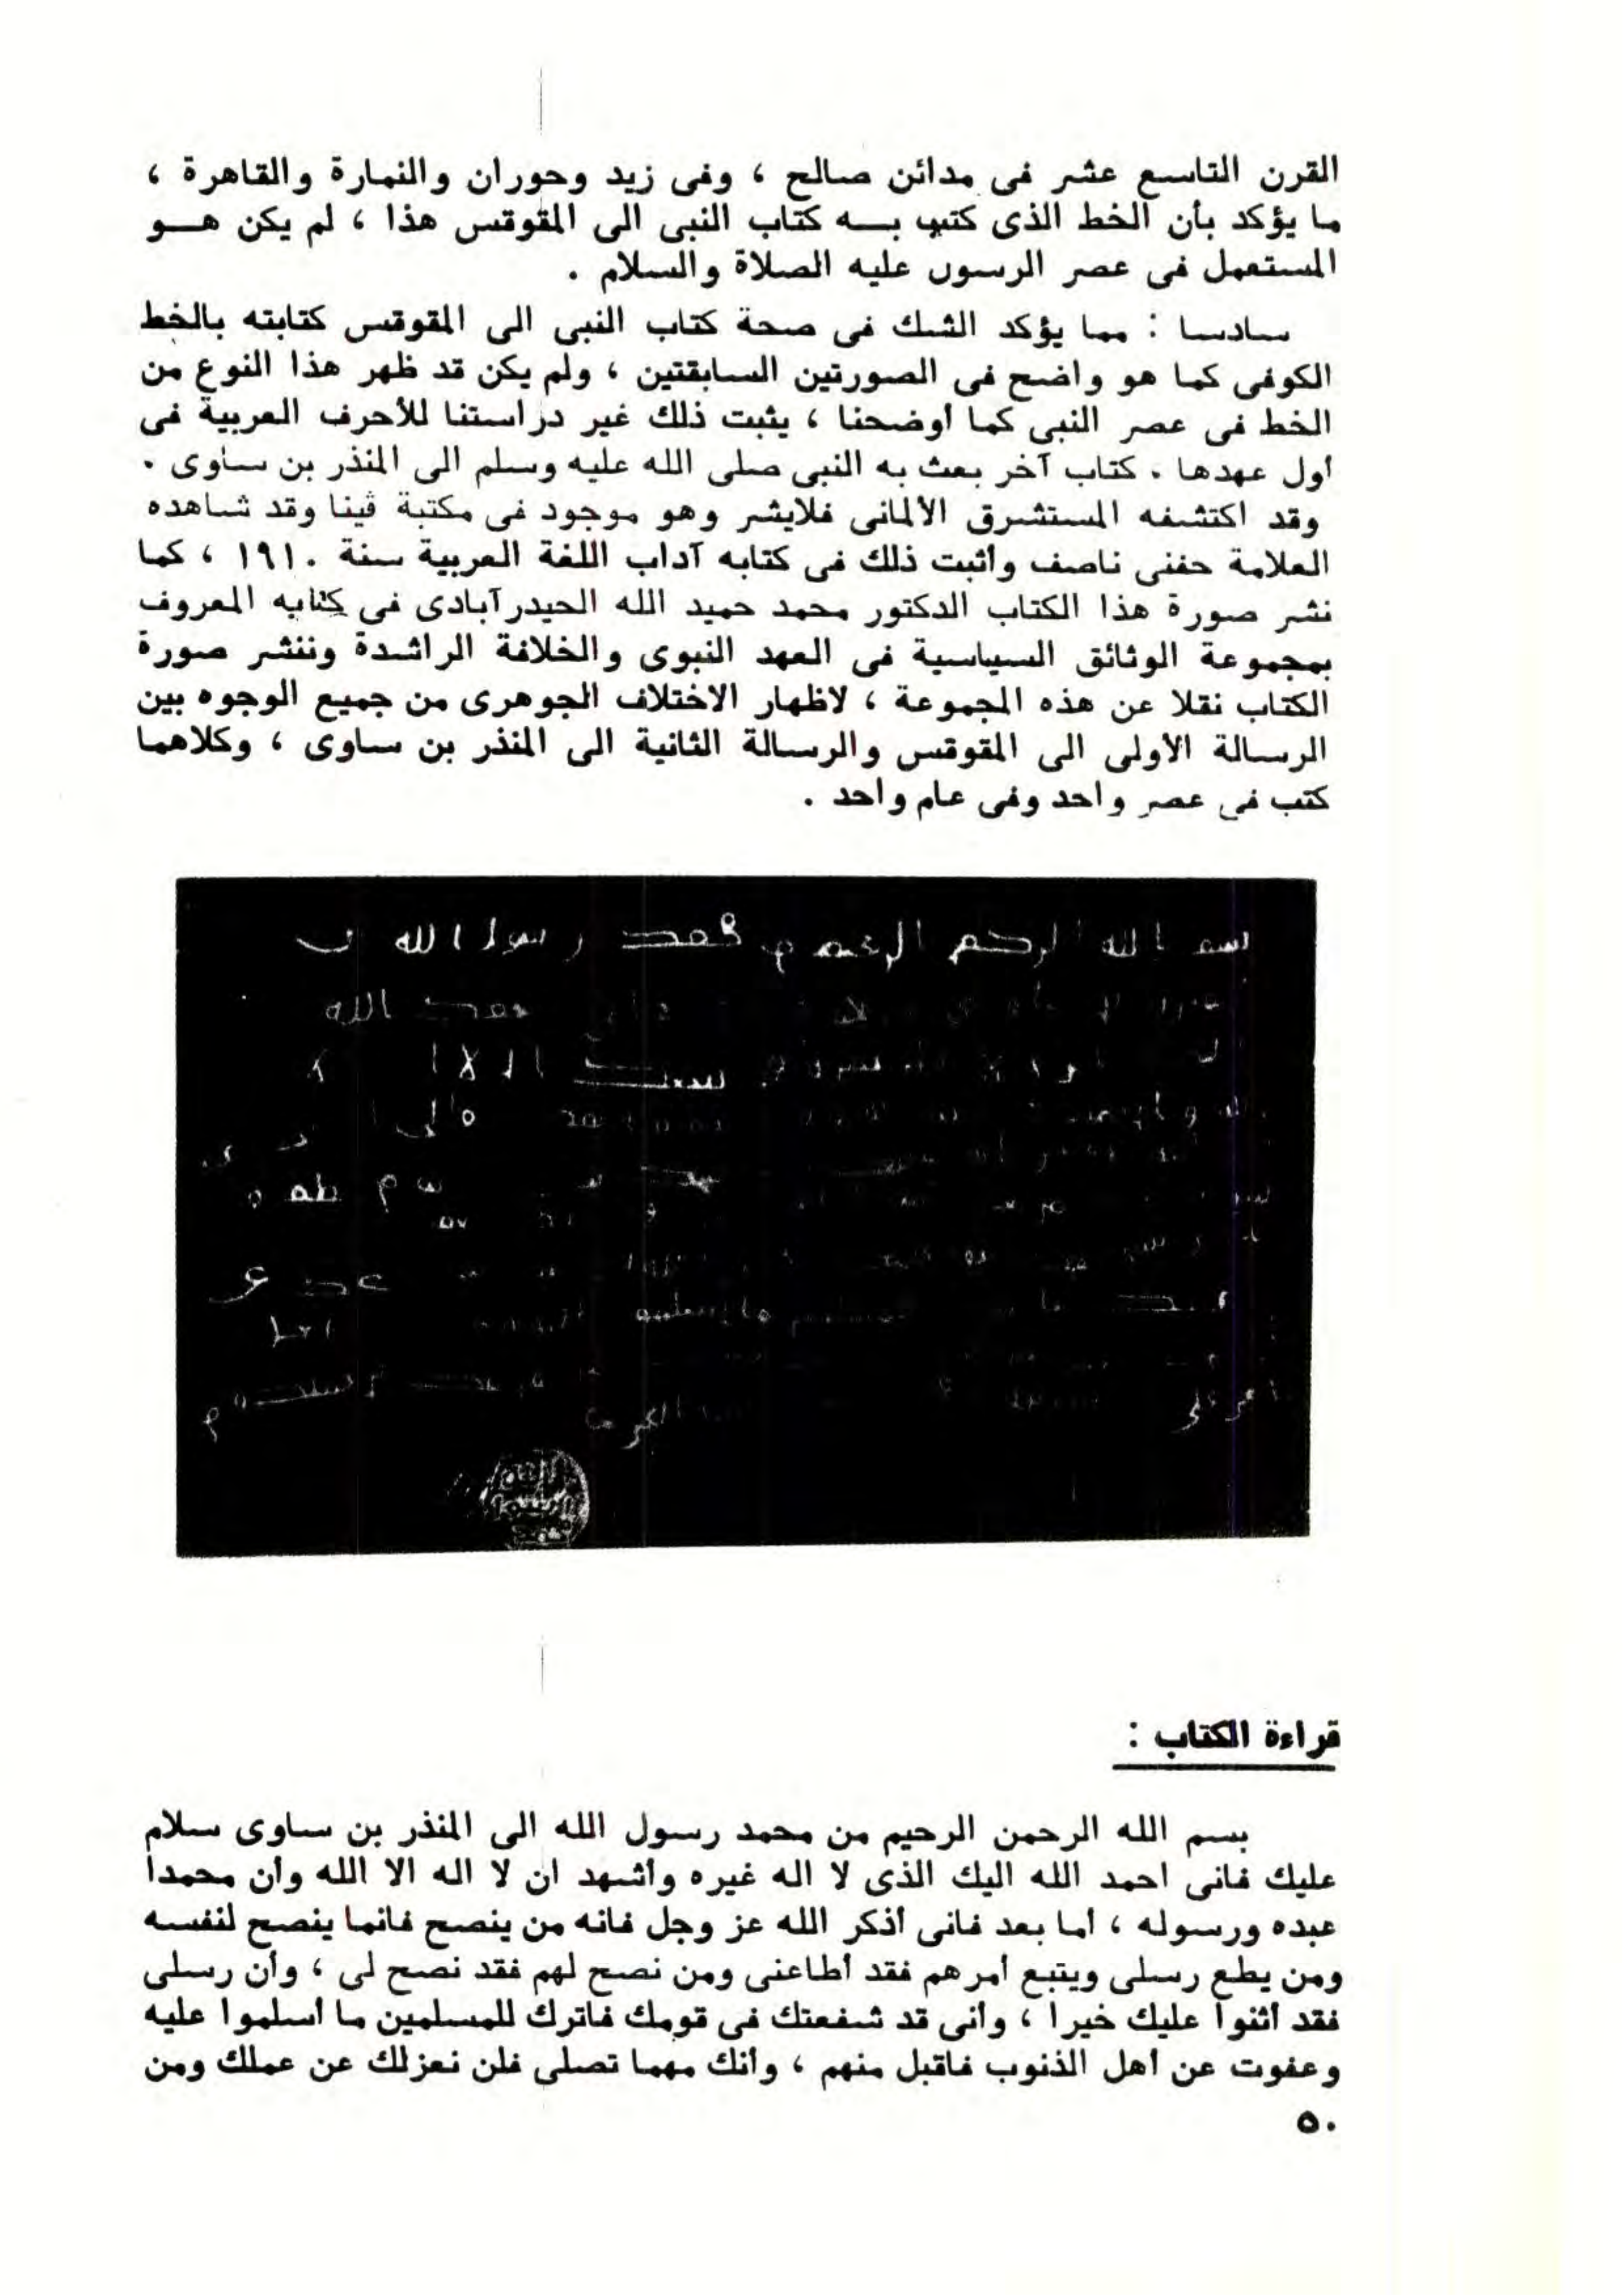 القرن التاسع عشر فى مدائن صالح ، وفى زيد وحوران والنمارة والقاهرة ،
ما يؤكد بأن الخط الذى كتب بـــه كتاب النبى الى المقوقس هذا ، لم يكن هـــو
المستعمل فى عصر الرسول عليه الصلاة والسلام .
سادسا : مما يؤكد الشك فى صحة كتاب النبى الى المقوقس كتابته بالخط
الكوفى كما هو واضح فى الصورتين السابقتين ، ولم يكن قد ظهر هذا النوع من
الخط فى عصر النبى كما أوضحنا ، يثبت ذلك غير دراستنا للأحرف العربية فى
أول عهدها . كتاب آخر بعث به النبى صلى الله عليه وسلم الى المنذر بن ساوى .
وقد اكتشفه المستشرق الألمانى فلايشر وهو موجود فى مكتبة ڤينا وقد شاهده
العلامة حفنى ناصف وأثبت ذلك فى كتابه آداب اللغة العربية سنة ١٩١٠ ، كما
نشر صورة هذا الكتاب الدكتور محمد حميد الله الحيدرآبادى فى كتابه المعروف
بمجموعة الوثائق السياسية فى العهد النبوى والخلافة الراشدة وننشر صورة
الكتاب نقلا عن هذه المجموعة ، لاظهار الاختلاف الجوهرى من جميع الوجوه بين
الرسالة الأولى الى المقوقس والرسالة الثانية الى المنذر بن ساوى ، وكلاهما
كتب فى عصر واحد وفى عام واحد .
الله
رسول الله
الله
قراءة الكتاب :
بسم الله الرحمن الرحيم من محمد رسول الله الى المنذر بن ساوى سلام
عليك فانى احمد الله اليك الذى لا اله غيره وأشهد ان لا اله الا الله وأن محمدا
عبده ورسوله ، أما بعد فانى أذكر الله عز وجل فانه من ينصح فانما ينصح لنفسه
ومن يطع رسلى ويتبع أمرهم فقد أطاعنى ومن نصح لهم فقد نصح لى ، وأن رسلى
فقد أثنوا عليك خيرا ، وأنى قد شفعتك فى قومك فاترك للمسلمين ما أسلموا عليه
وعفوت عن أهل الذنوب فاقبل منهم ، وأنك مهما تصلى فلن نعزلك عن عملك ومن
٥٠